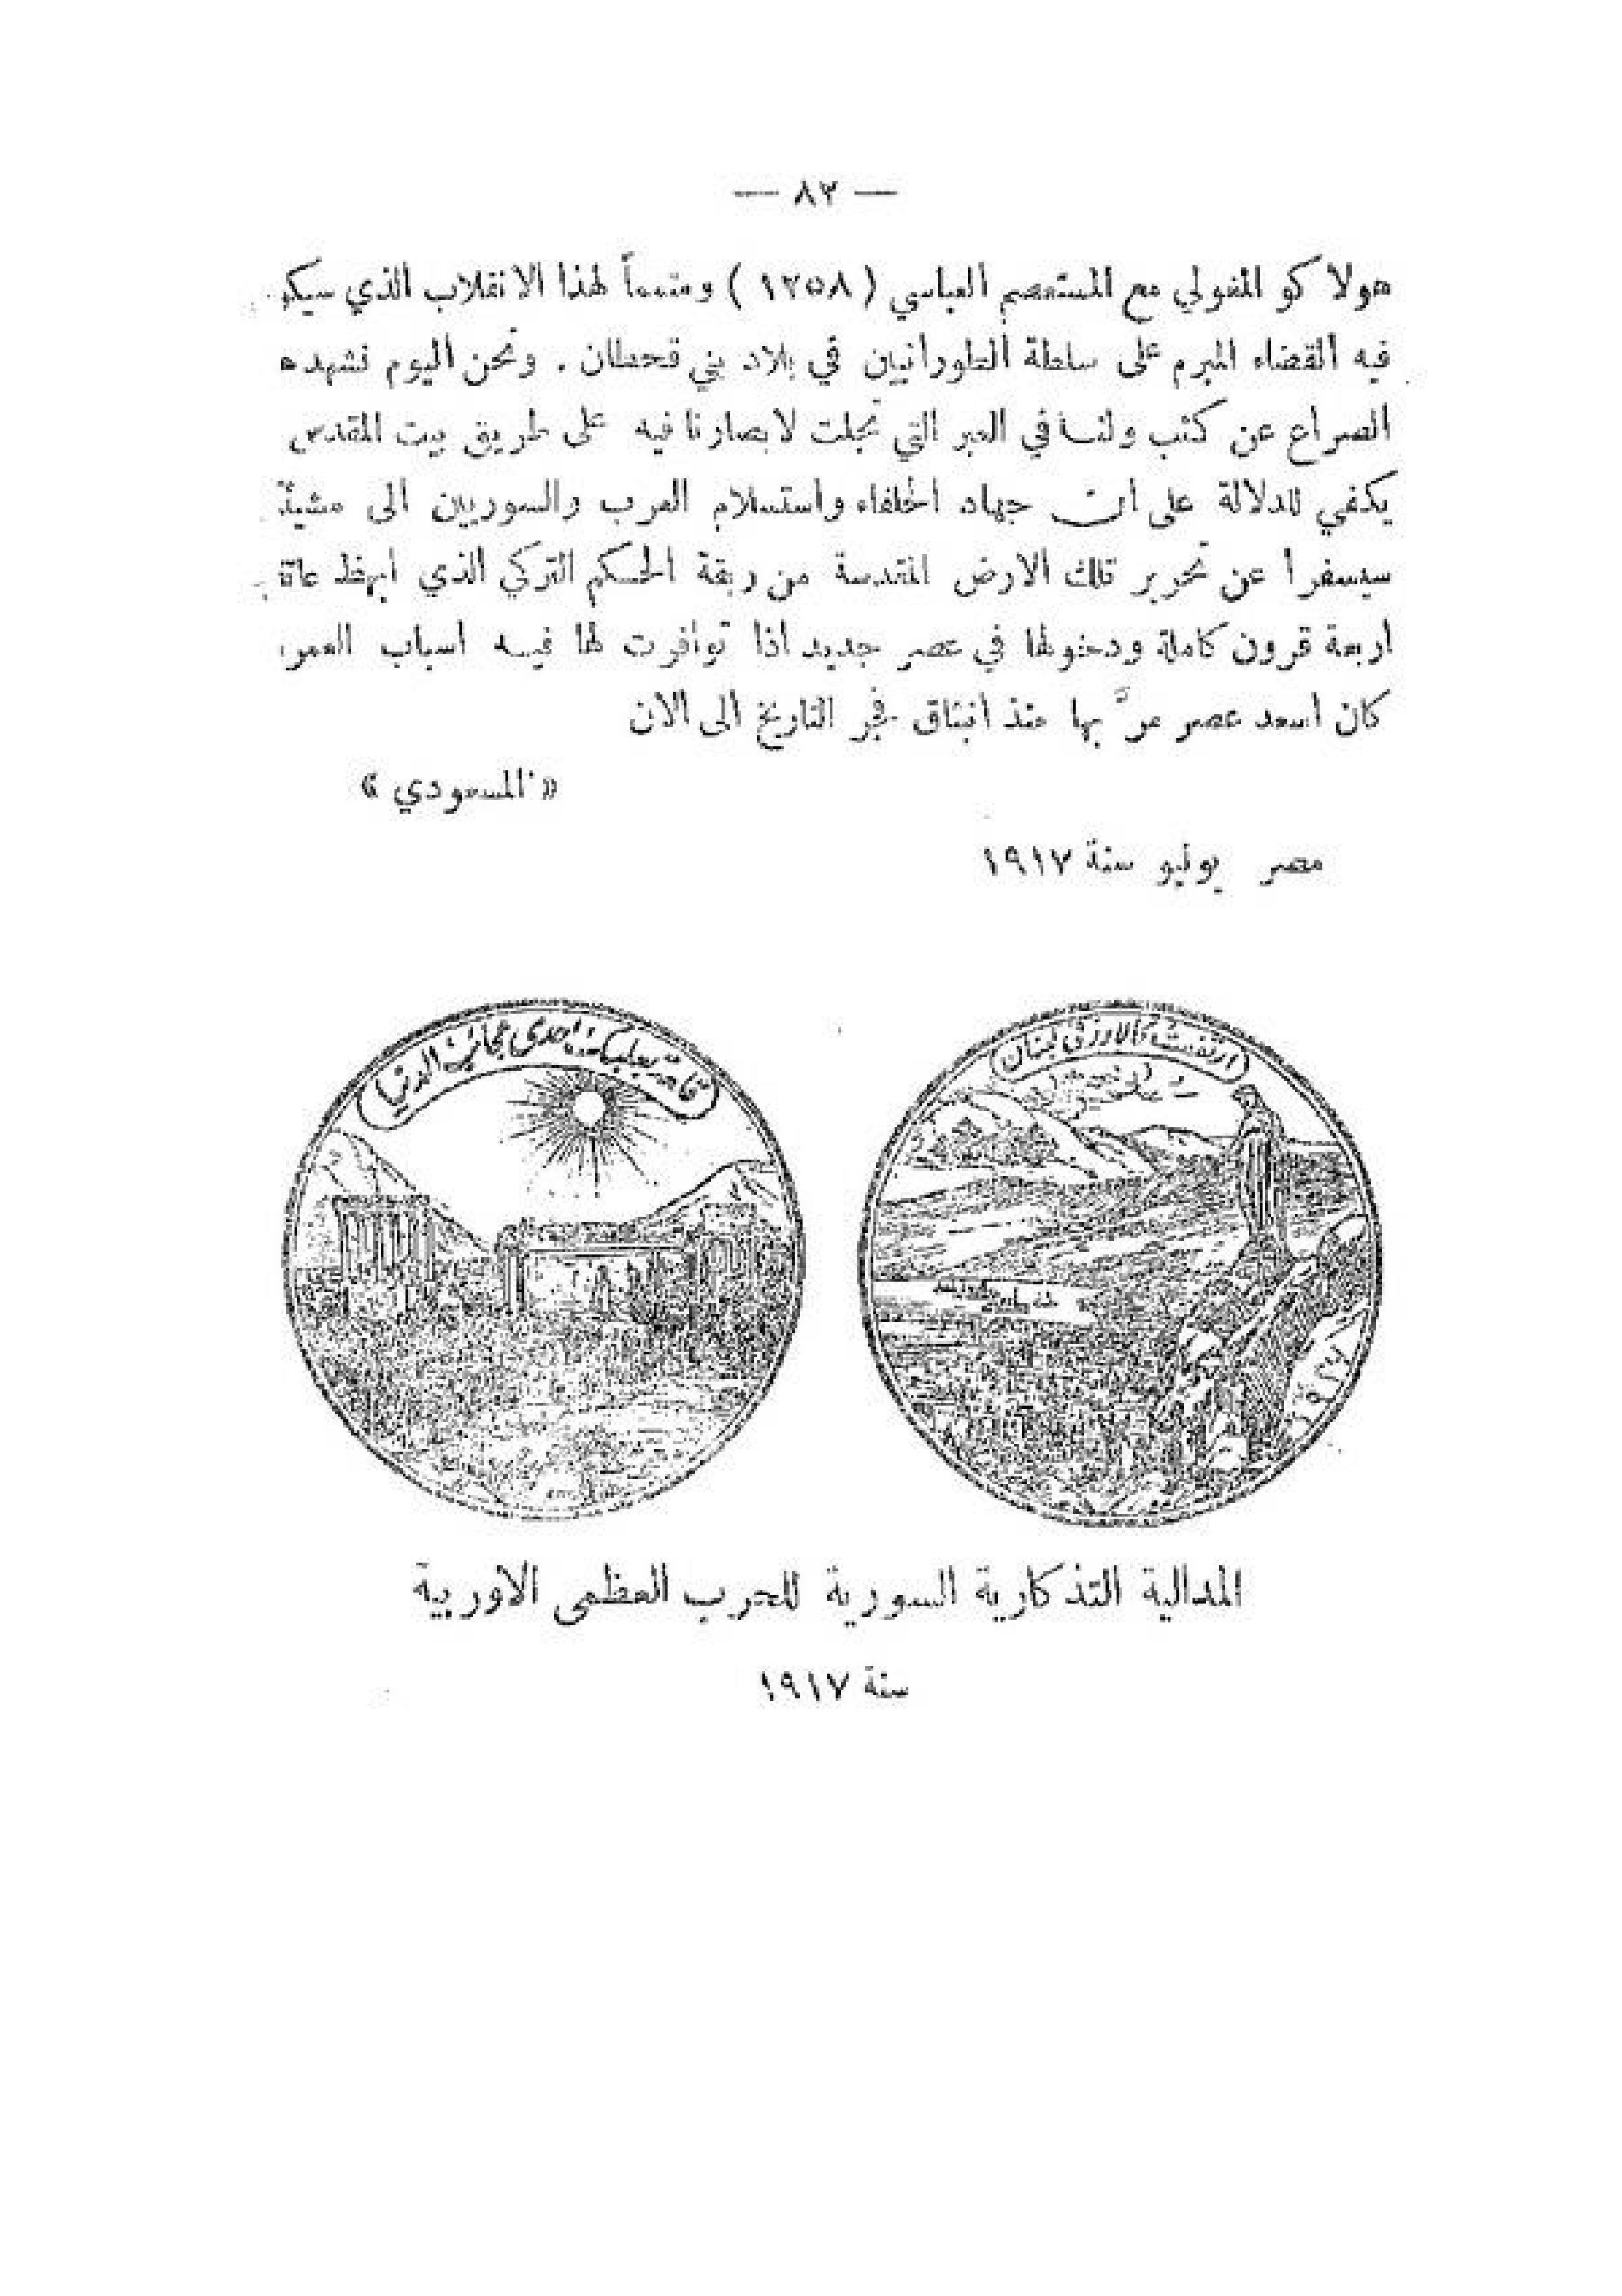 — ٨٣ —
هولاكو المغولي مع المستعصم العباسي ( ١٢٥٨ ) ومتمماً لهذا الانقلاب الذي سيكو
فيه القضاء المبرم على سلطة الطورانيين في بلاد بني قحطان . ونحن اليوم نشهد ه
الصراع عن كثب ولنا في العبر التي تجلت لابصارنا فيه على طريق بيت المقدس
يكفي للدلالة على ان جهاد الخلفاء واستسلام العرب والسوريين الى مشيئة
سيسفرا عن تحرير تلك الارض المقدسة من ربقة الحكم التركي الذي ابهظ عاتق
اربعة قرون كاملة ودخولها في عصر جديد اذا توافرت لها فيه اسباب العمر
كان اسعد عصر مرَّ بها منذ انبثاق فجر التاريخ الى الان
« المسعودي »
مصر يونيو سنة ١٩١٧
قلعة بعلبك احدى عجائب الدنيا
الارز في لبنان
المدالية التذكارية السورية للحرب العظمى الاوربية
سنة ١٩١٧